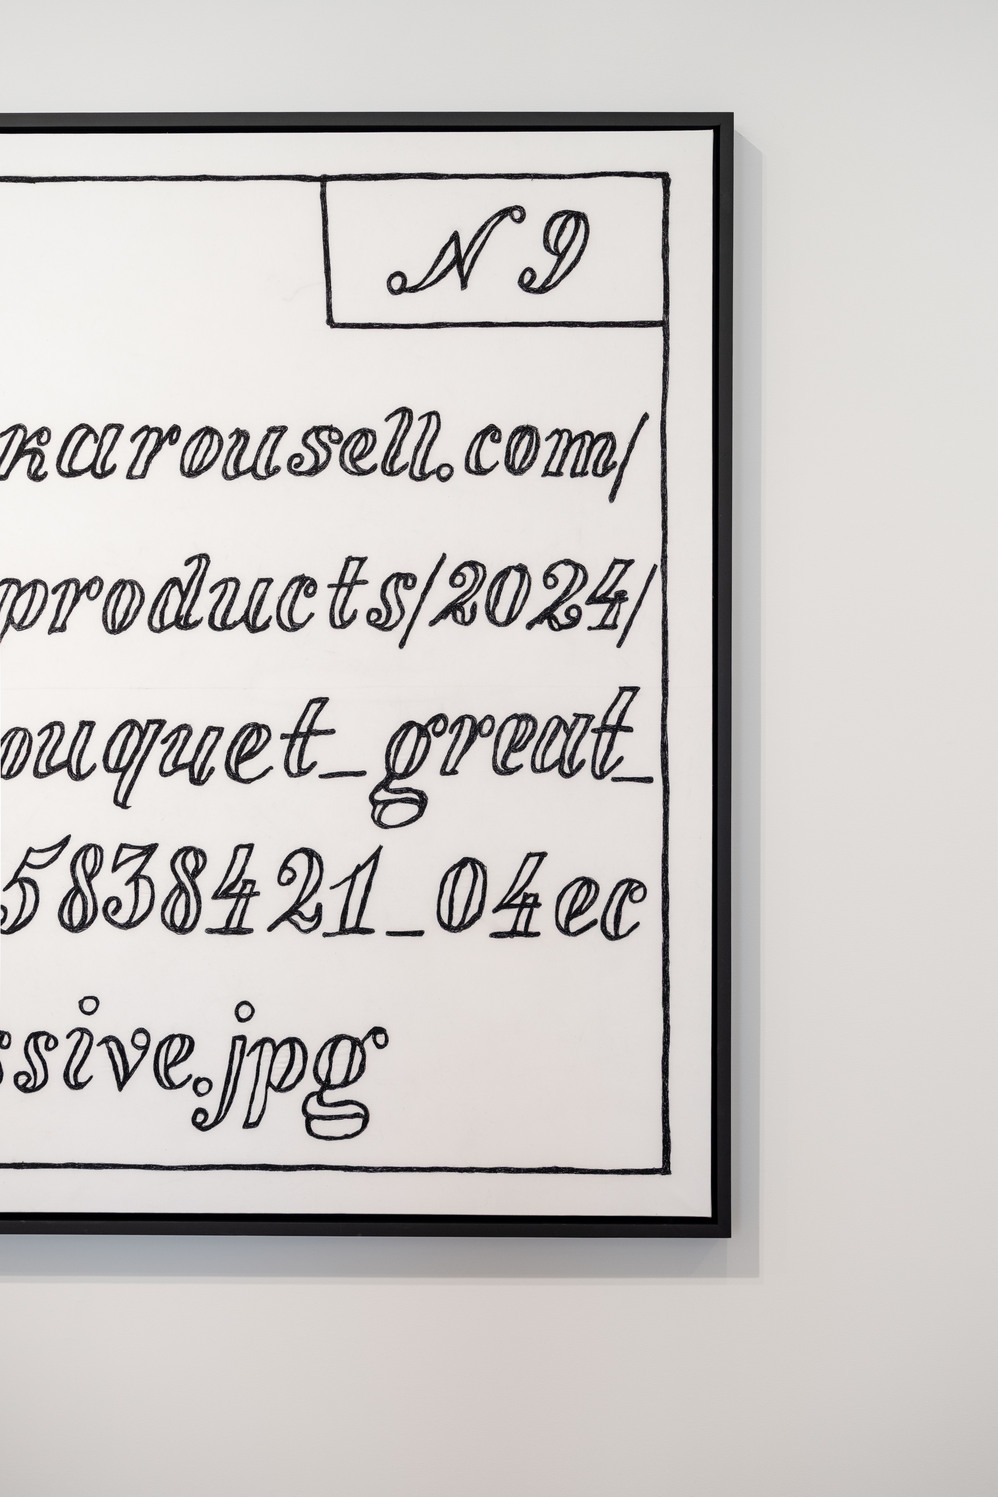 N 9
karousell.com/
products/2024/
ouquet_great_
5838421_04ec
ssive.jpg